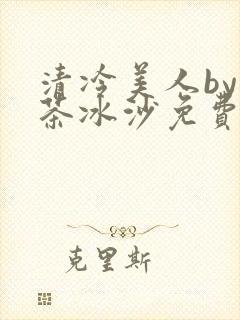 清冷美人by
茶冰沙免費
克里斯